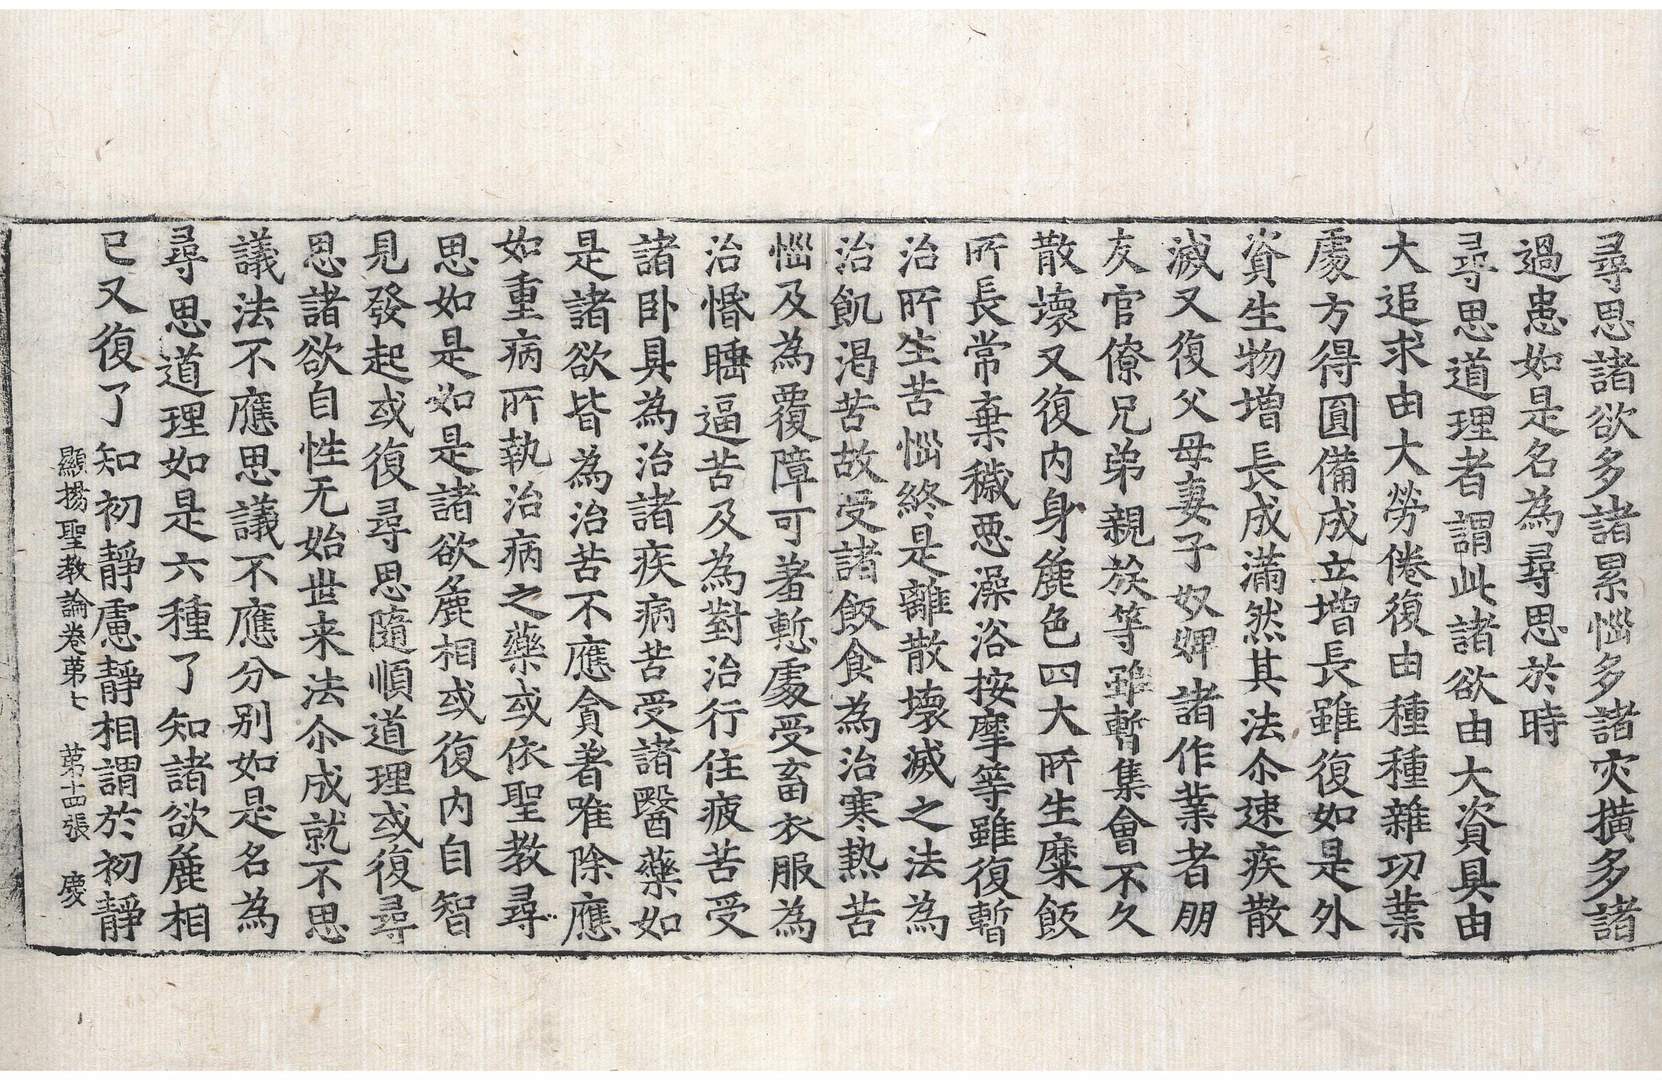 尋思諸欲多諸累惱多諸灾横多諸
過患如是名為尋思於時
尋思道理者謂此諸欲由大資具由
大追求由大勞倦復由種種雜㓛業
處方得圓備成立增長雖復如是外
資生物增長成滿然其法尒速疾散
滅又復父母妻子奴婢諸作業者朋
友官僚兄弟親族等雖暫集會不久
散壞又復內身麁色四大所生糜飯
所長常棄穢惡澡浴按摩等雖復暫
治所生苦惱終是離散壞滅之法為
治飢渴苦故受諸飯食為治寒熱苦
惱及為覆障可著慙處受畜衣服為
治惛睡逼苦及為對治行住疲苦受
諸卧具為治諸疾病苦受諸醫藥如
是諸欲皆為治苦不應貪著唯除應
如重病所執治病之藥或依聖教尋
思如是如是諸欲麁相或復內自智
見發起或復尋思隨順道理或復尋
思諸欲自性无始世来法尒成就不思
議法不應思議不應分别如是名為
尋思道理如是六種了知諸欲麁相
已又復了知初靜慮靜相謂於初靜
顯揚聖教論卷第七 第十四張 慶